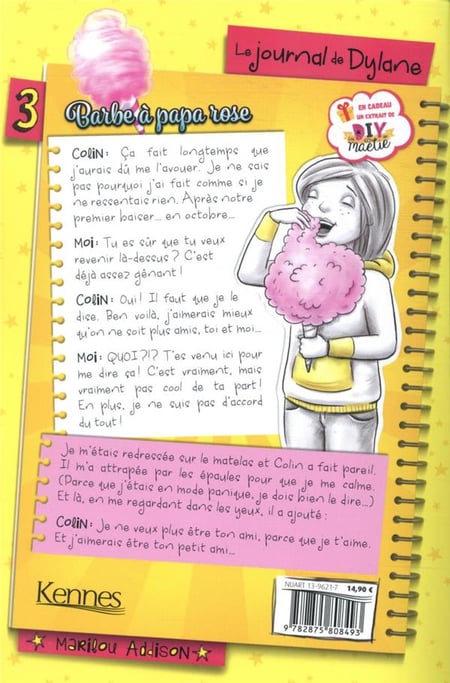 Le journal de Dylane
3
Barbe à papa rose
EN CADEAU
UN EXTRAIT DE
DIY
Maélie
Colin: Ça fait longtemps que
j'aurais dû me l'avouer. Je ne sais
pas pourquoi j'ai fait comme si je
ne ressentais rien. Après notre
premier baiser... en octobre...
Moi: Tu es sûr que tu veux
revenir là-dessus? C'est
déjà assez gênant!
Colin: Oui! Il faut que je le
dise. Ben voilà, j'aimerais mieux
qu'on ne soit plus amis, toi et moi...
Moi: QUOI?!? T'es venu ici pour
me dire ça! C'est vraiment, mais
vraiment pas cool de ta part!
En plus, je ne suis pas d'accord
du tout!
Je m'étais redressée sur le matelas et Colin a fait pareil.
Il m'a attrapée par les épaules pour que je me calme.
(Parce que j'étais en mode panique, je dois bien le dire...)
Et là, en me regardant dans les yeux, il a ajouté:
Colin: Je ne veux plus être ton ami, parce que je t'aime.
Et j'aimerais être ton petit ami...
Kennes
NUART 13-9621-7
14,90 €
9 782875 808493
Marilou Addison